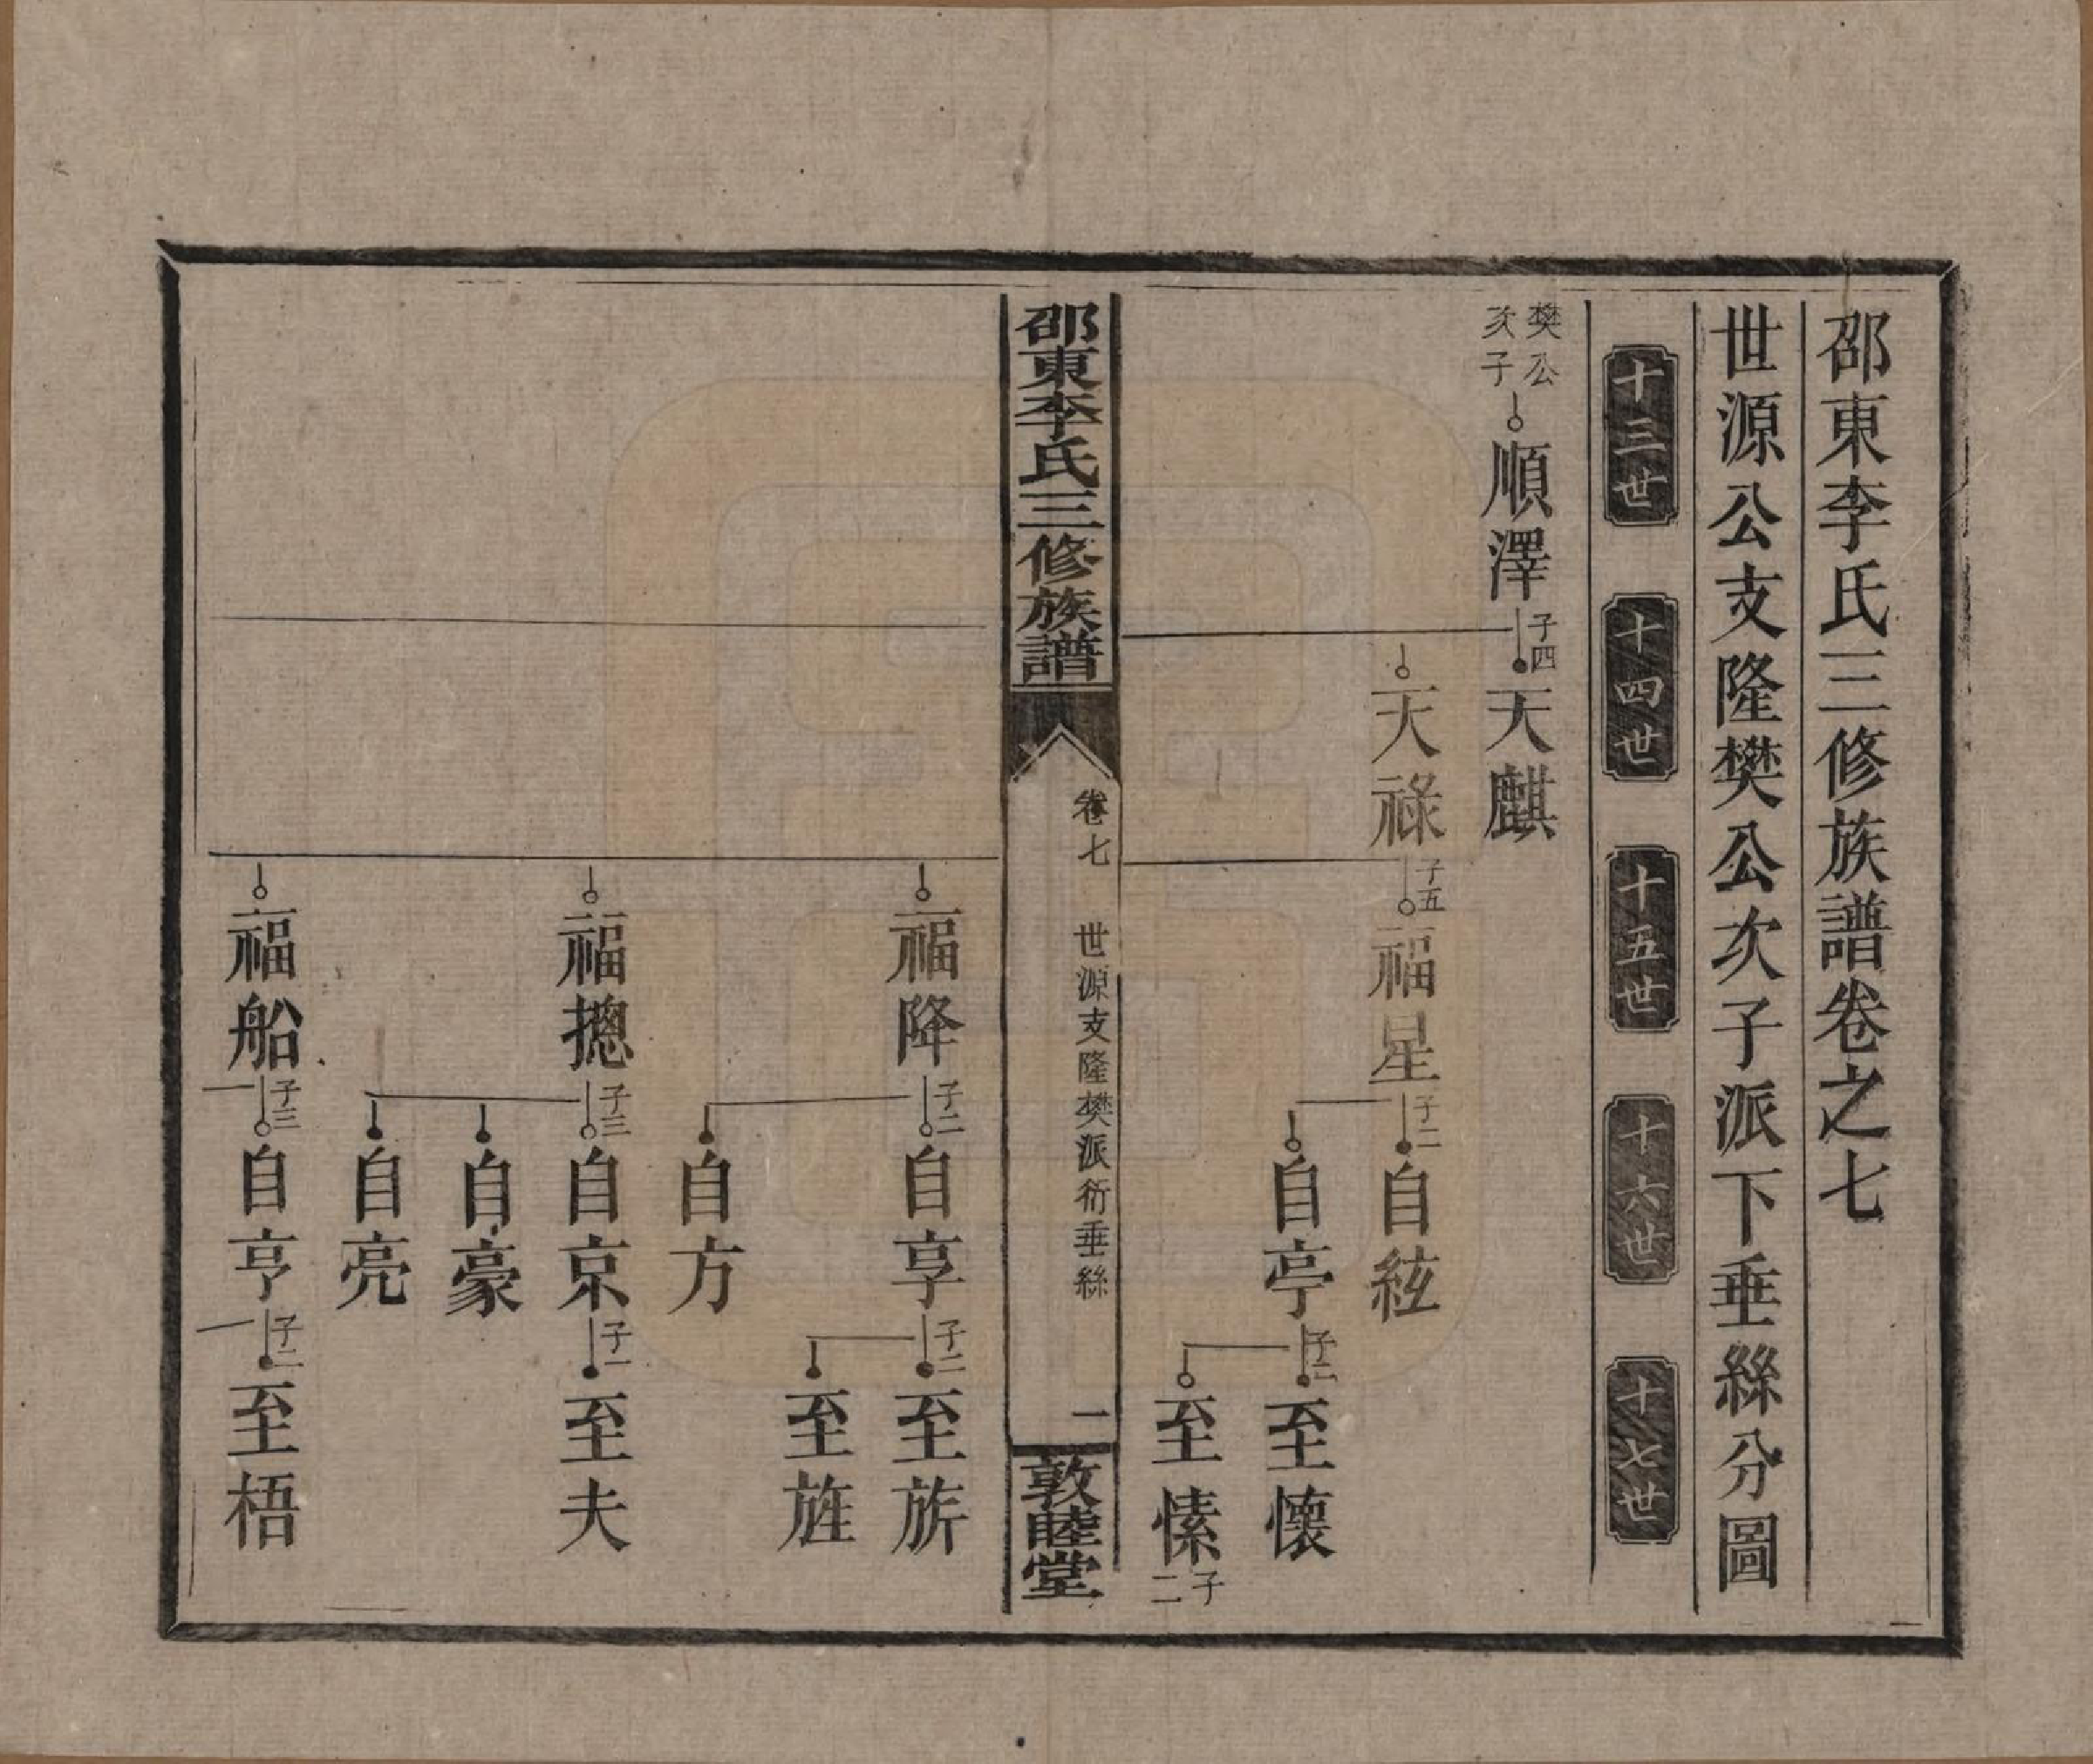 邵東李氏三修族譜卷之七
世源公支隆樊公次子派下垂絲分圖
十三世
十四世
十五世
十六世
十七世
樊公次子
順澤
子四
天麒
天祿
子五
福星
子二
自絃
自亭
子二
至懷
至愫
子二
邵東李氏三修族譜
卷七
世源支隆樊派衍垂絲
一
敦睦堂
福降
子二
自享
子二
至旂
至旌
自方
福摠
子三
自京
子一
至夫
自豪
自亮
福船
子三
自亨
子二
至梧